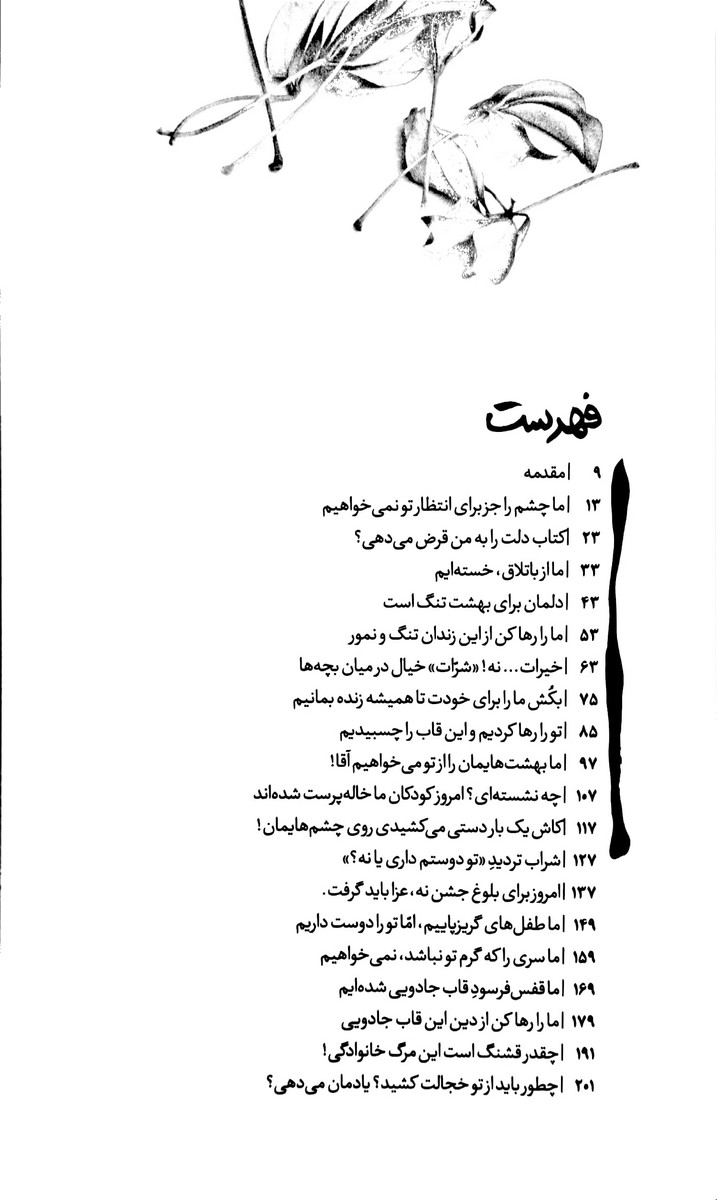 فهرست
۹ | مقدمه
۱۳ | ما چشم را جز برای انتظار تو نمی‌خواهیم
۲۳ | کتاب دلت را به من قرض می‌دهی؟
۳۳ | ما از باتلاق، خسته‌ایم
۴۳ | دلمان برای بهشت تنگ است
۵۳ | ما را رها کن از این زندان تنگ و نمور
۶۳ | خیرات... نه! «شرّات» خیال در میان بچه‌ها
۷۵ | بکُش ما را برای خودت تا همیشه زنده بمانیم
۸۵ | تو را رها کردیم و این قاب را چسبیدیم
۹۷ | ما بهشت‌هایمان را از تو می‌خواهیم آقا!
۱۰۷ | چه نشسته‌ای؟ امروز کودکان ما خاله‌پرست شده‌اند
۱۱۷ | کاش یک بار دستی می‌کشیدی روی چشم‌هایمان!
۱۲۷ | شراب تردیدِ «تو دوستم داری یا نه؟»
۱۳۷ | امروز برای بلوغ جشن نه، عزا باید گرفت.
۱۴۹ | ما طفل‌های گریزپاییم، امّا تو را دوست داریم
۱۵۹ | ما سری را که گرم تو نباشد، نمی‌خواهیم
۱۶۹ | ما قفس‌فرسودِ قاب جادویی شده‌ایم
۱۷۹ | ما را رها کن از دین این قاب جادویی
۱۹۱ | چقدر قشنگ است این مرگ خانوادگی!
۲۰۱ | چطور باید از تو خجالت کشید؟ یادمان می‌دهی؟